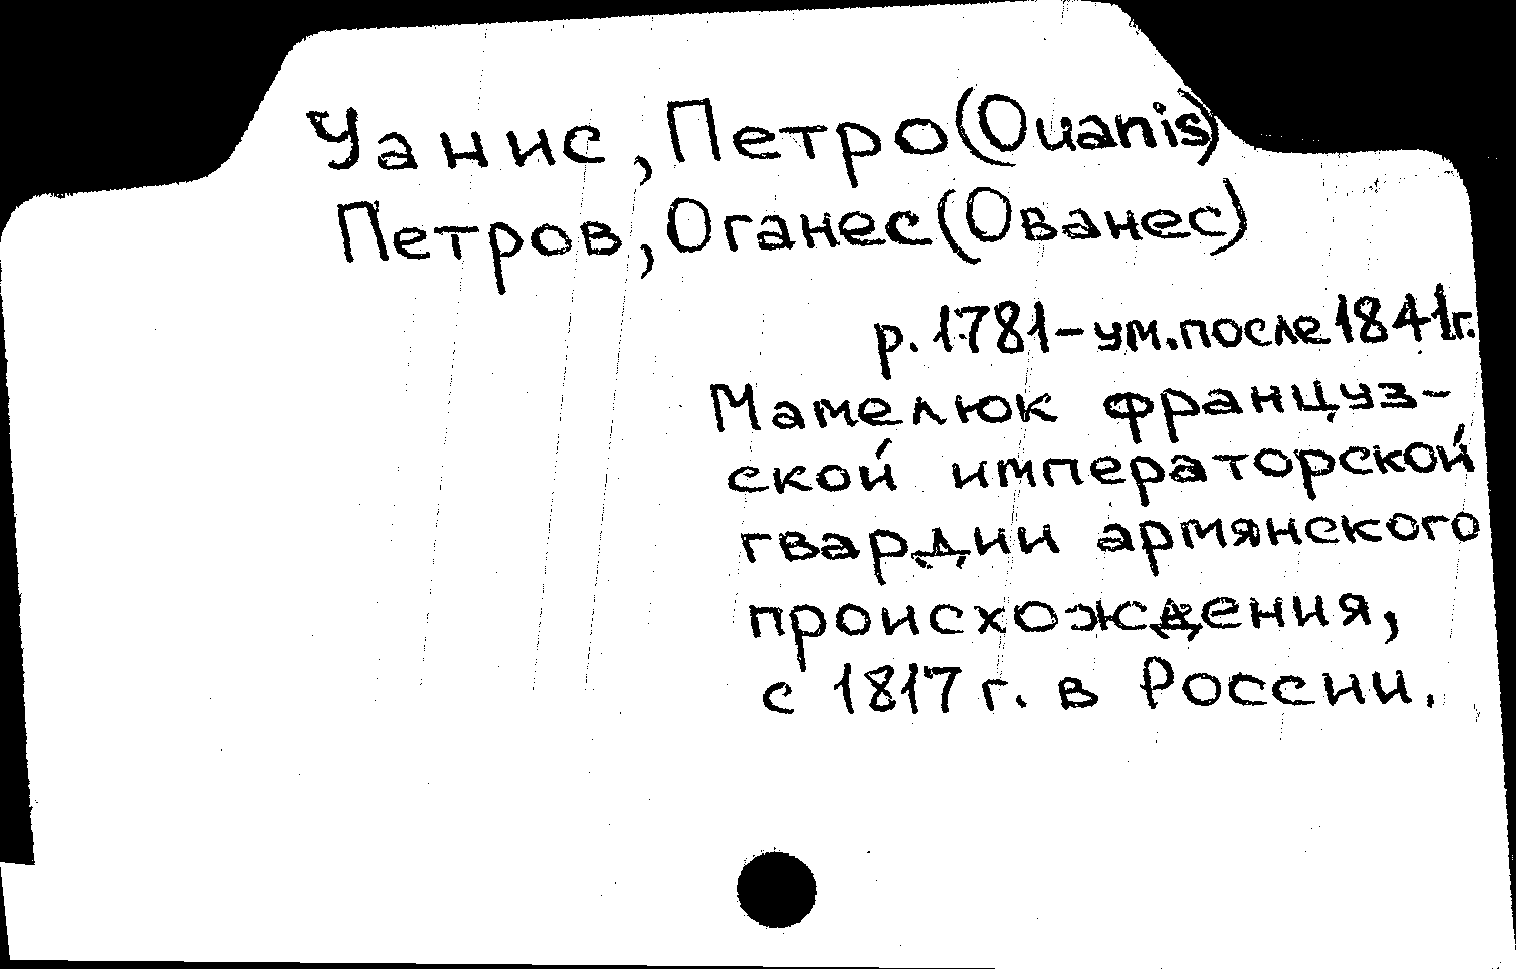 Уанис, Петро (Ouanis)
Петров, Оганес (Ованес)
р. 1781 – ум. после 1841 г.
Мамелюк француз-
ской императорской
гвардии армянского
происхождения,
с 1817 г. в России.